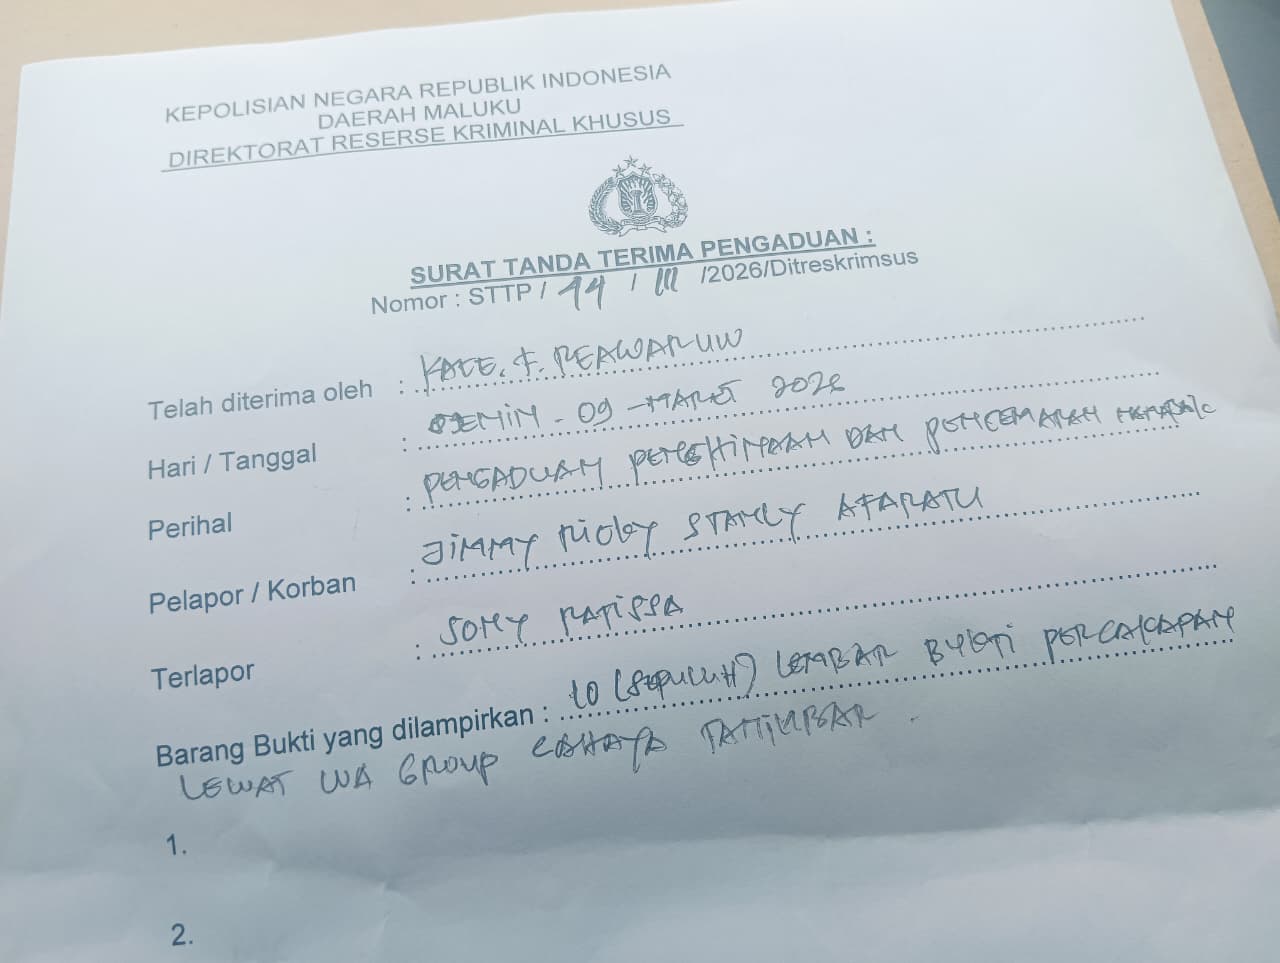 KEPOLISIAN NEGARA REPUBLIK INDONESIA
DAERAH MALUKU
DIREKTORAT RESERSE KRIMINAL KHUSUS
SURAT TANDA TERIMA PENGADUAN :
Nomor : STTP / 44 / III /2026/Ditreskrimsus
Telah diterima oleh : KACE. F. REAWARUW
Hari / Tanggal : SENIN - 09 - MARET 2026
Perihal : PENGADUAN PENGHINAAN DAN PENCEMARAN NAMA BAIK
Pelapor / Korban : JIMMY RICKY STANLY AFARATU
Terlapor : SONY RATISSA
Barang Bukti yang dilampirkan : 10 (SEPULUH) LEMBAR BUKTI PERCAKAPAN
LEWAT WA GROUP CAHAYA TANIMBAR .
1.
2.